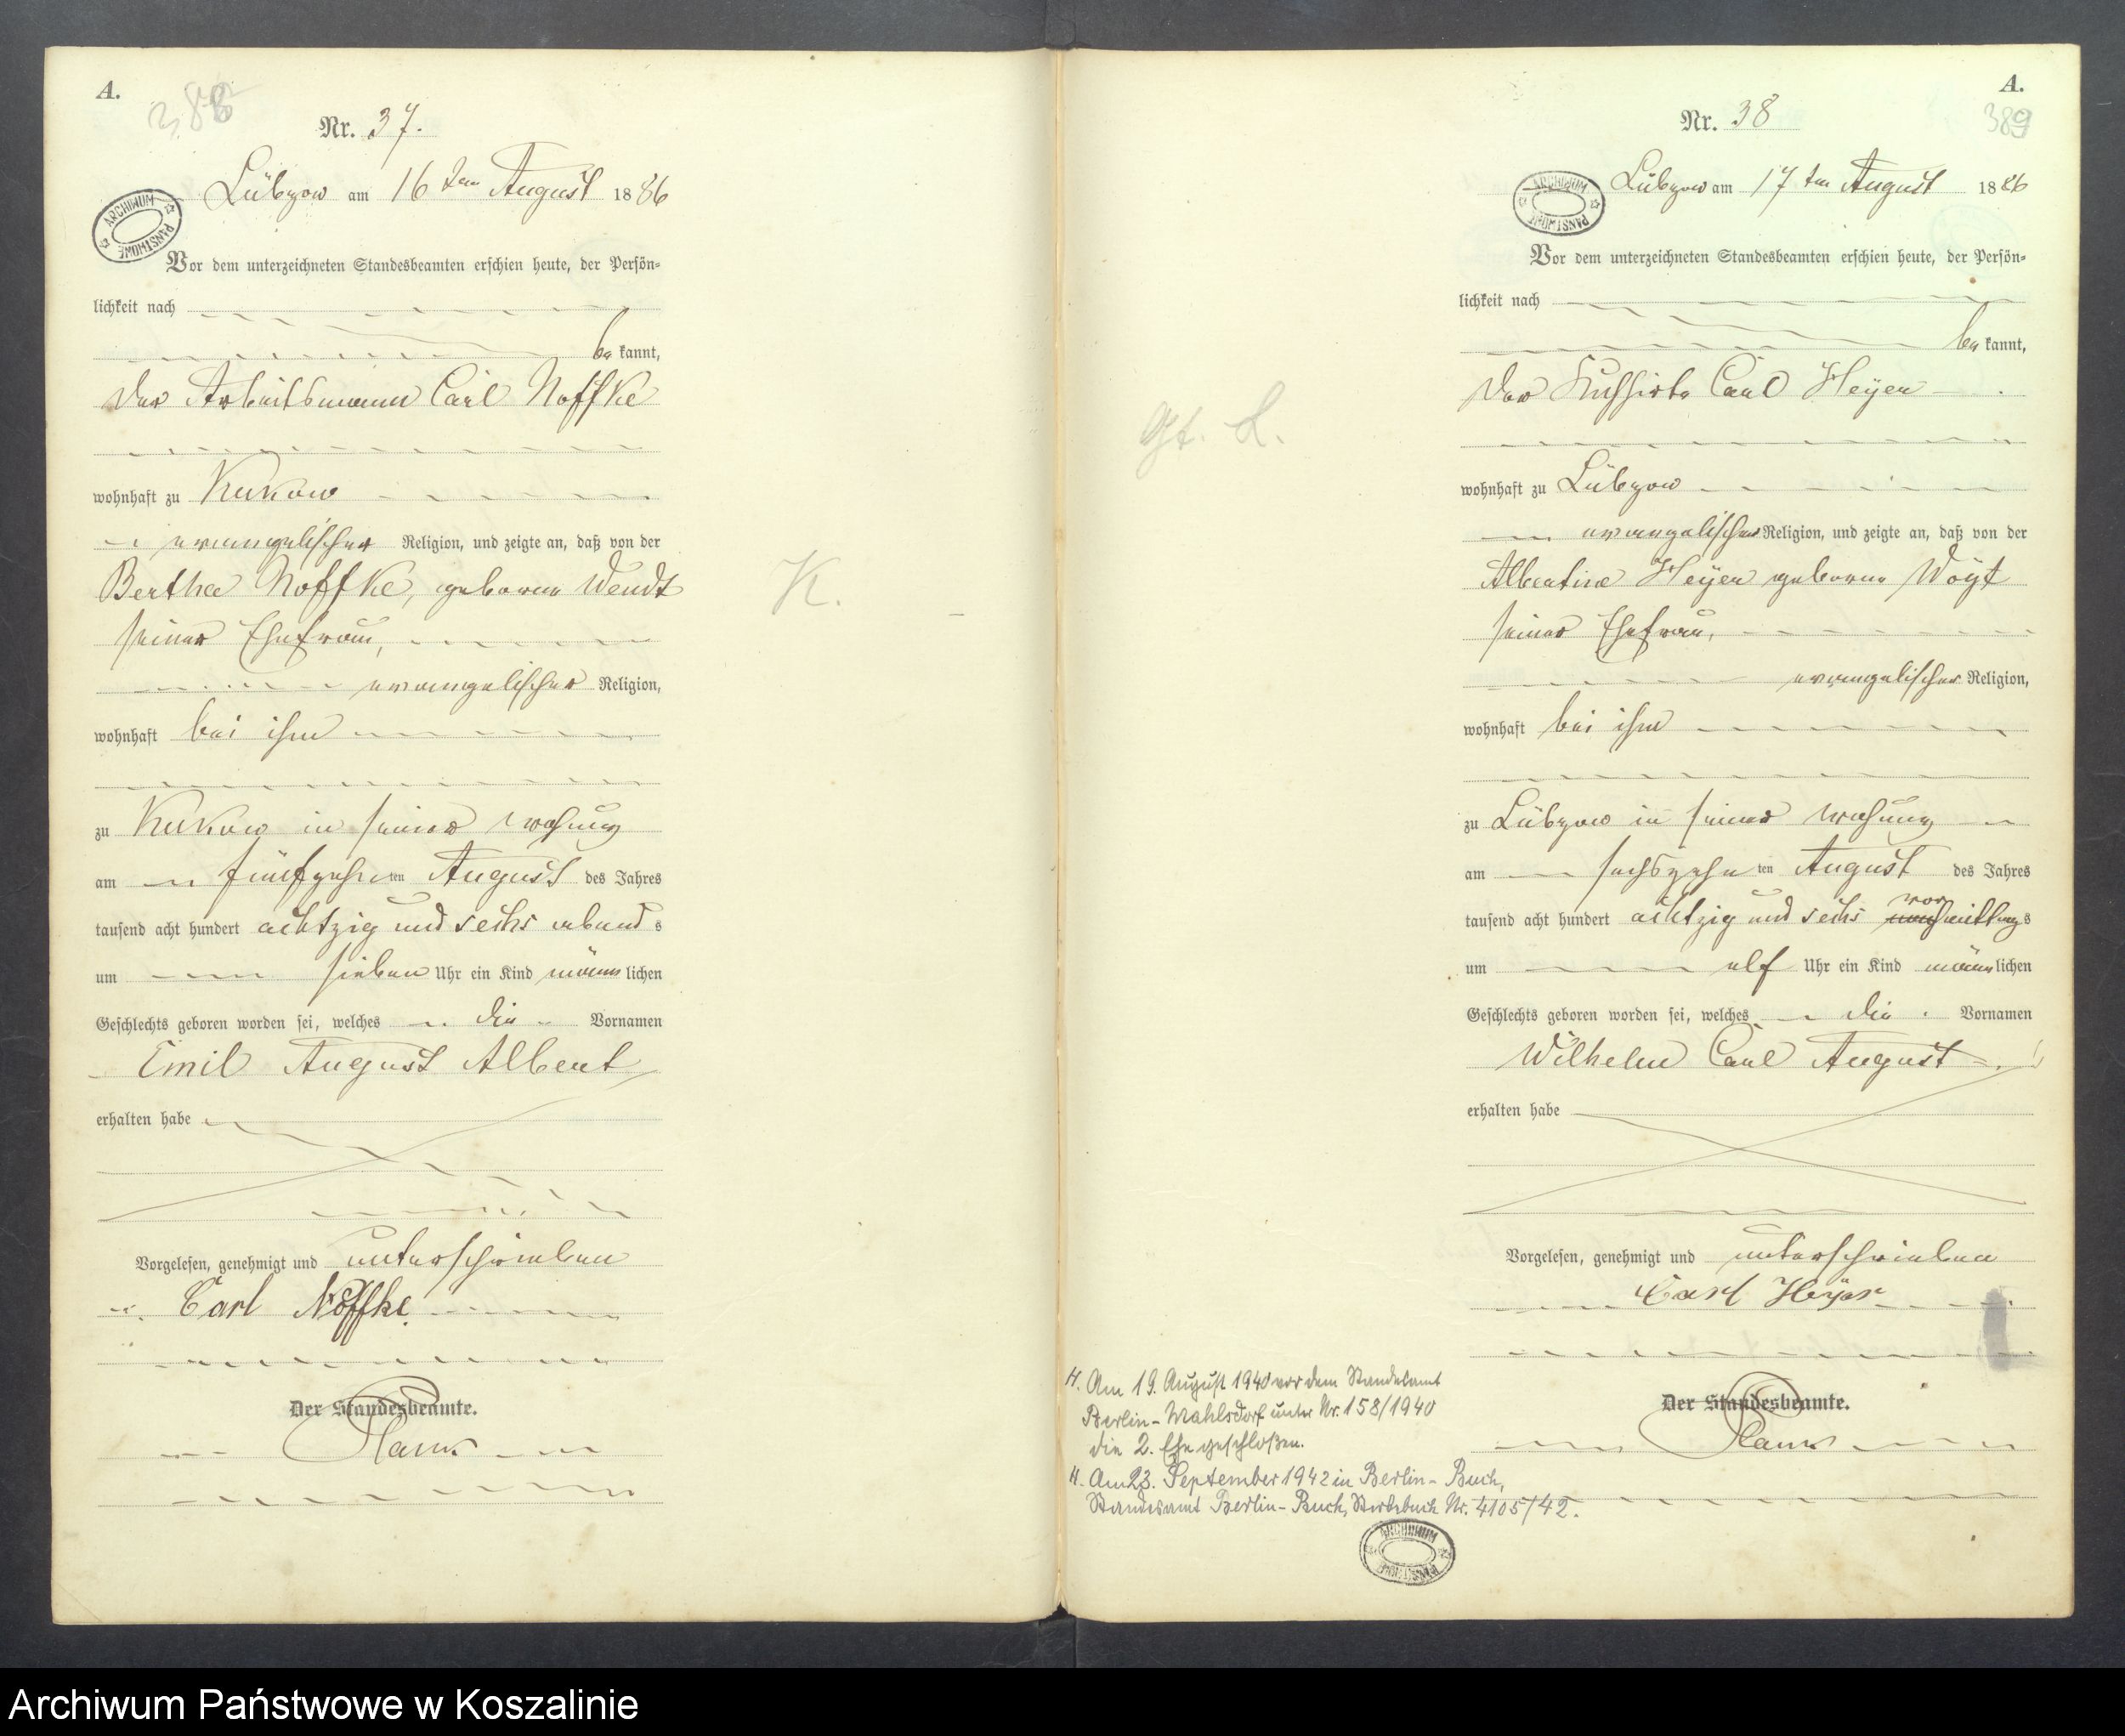 A.
388
Nr. 37.
Lübzow am 16 ten August 1886
ARCHIWUM PAŃSTWOWE
Vor dem unterzeichneten Standesbeamten erschien heute, der Persön-
lichkeit nach
be kannt,
der Arbeitsmann Carl Noffke
wohnhaft zu Kukow
evangelischer Religion, und zeigte an, daß von der
Bertha Noffke, geborne Wendt
seiner Ehefrau,
evangelischer Religion,
wohnhaft bei ihm
zu Kukow in seiner Wohnung
am fünfzehnten August des Jahres
tausend acht hundert achtzig und sechs abends
um sieben Uhr ein Kind männlichen
Geschlechts geboren worden sei, welches die Vornamen
Emil August Albert
erhalten habe
Vorgelesen, genehmigt und unterschrieben
Carl Noffke
Der Standesbeamte.
K.
A.
389
Nr. 38
Lübzow am 17 ten August 1886
ARCHIWUM PAŃSTWOWE
Vor dem unterzeichneten Standesbeamten erschien heute, der Persön-
lichkeit nach
be kannt,
der Kuhhirte Carl Heyer
wohnhaft zu Lübzow
evangelischer Religion, und zeigte an, daß von der
Albertine Heyer geborne Voigt
seiner Ehefrau,
evangelischer Religion,
wohnhaft bei ihm
zu Lübzow in seiner Wohnung
am sechszehnten August des Jahres
tausend acht hundert achtzig und sechs vormittags
um elf Uhr ein Kind männlichen
Geschlechts geboren worden sei, welches die Vornamen
Wilhelm Carl August
erhalten habe
Vorgelesen, genehmigt und unterschrieben
Carl Heyer
Der Standesbeamte.
Gt. L.
H. Am 19. August 1940 vor dem Standesamt
Berlin-Mahlsdorf unter Nr. 158/1940
die 2. Ehe geschloßen.
Am 23. September 1942 in Berlin-Buch,
Standesamt Berlin-Buch, Sterbebuch Nr. 4105/42.
ARCHIWUM PAŃSTWOWE
Archiwum Państwowe w Koszalinie